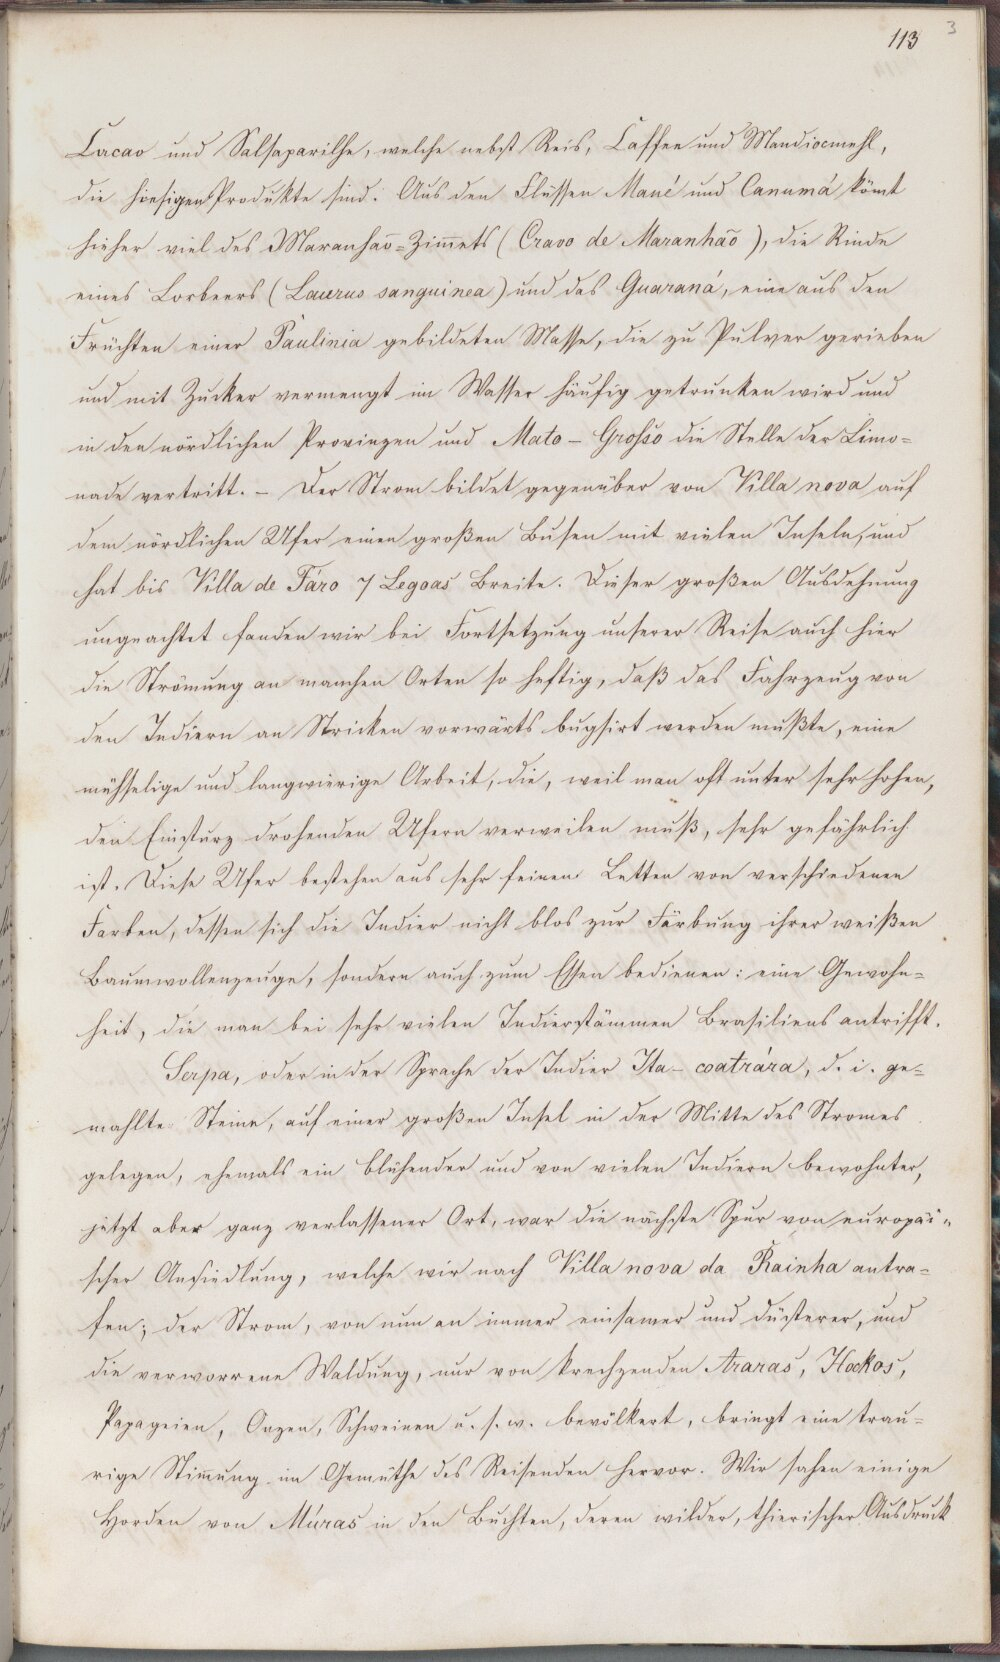 113 3
Cacao und Salsaparilhe, welche nebst Reis, Caffee und Mandiocmehl,
die hiesigen Produkte sind. Aus den Flüssen Maué und Canumá kömt
hieher viel des Maranhaõ-Zim̅ets (Cravo de Maranhaõ), die Rinde
eines Lorbeers (Laurus sanguinea) und das Guaraná, eine aus den
Früchten einer Paulinia gebildeten Masse, die zu Pulver gerieben
und mit Zucker vermengt im Wasser häufig getrunken wird und
in den nördlichen Provinzen und Mato-Grosso die Stelle der Limo=
nade vertritt. – Der Strom bildet gegenüber von Villa nova auf
dem nördlichen Ufer einen großen Busen mit vielen Inseln, und
hat bis Villa de Fáro 7 Legoas Breite. Dieser großen Ausdehnung
ungeachtet fanden wir bei Fortsetzung unserer Reise auch hier
die Strömung an manchen Orten so heftig, daß das Fahrzeug von
den Indiern an Stricken vorwärts bugsirt werden mußte, eine
mühselige und langwierige Arbeit, die, weil man oft unter sehr hohen,
den Einsturz drohenden Ufern verweilen muß, sehr gefährlich
ist. Diese Ufer bestehen aus sehr feinen Letten von verschiedenen
Farben, dessen sich die Indier nicht blos zur Färbung ihrer weißen
Baumwollenzeuge, sondern auch zum Essen bedienen: eine Gewohn=
heit, die man bei sehr vielen Indierstämmen Brasiliens antrifft.
Serpa, oder in der Sprache der Indier Ita-coatiára, d. i. ge=
mahlte Steine, auf einer großen Insel in der Mitte des Stromes
gelegen, ehemals ein blühender und von vielen Indiern bewohnter,
jetzt aber ganz verlassener Ort, war die nächste Spur von europäi=
scher Ansiedlung, welche wir nach Villa nova da Rainha antra=
fen; der Strom, von nun an immer einsamer und düsterer, und
die verworrene Waldung, nur von krechzenden Araras, Hockos,
Papageien, Onzen, Schweinen u. s. w. bevölkert, bringt eine trau=
rige Stim̅ung im Gemüthe des Reisenden hervor. Wir sahen einige
Horden von Múras in den Buchten, deren wilder, thierischer Ausdruck